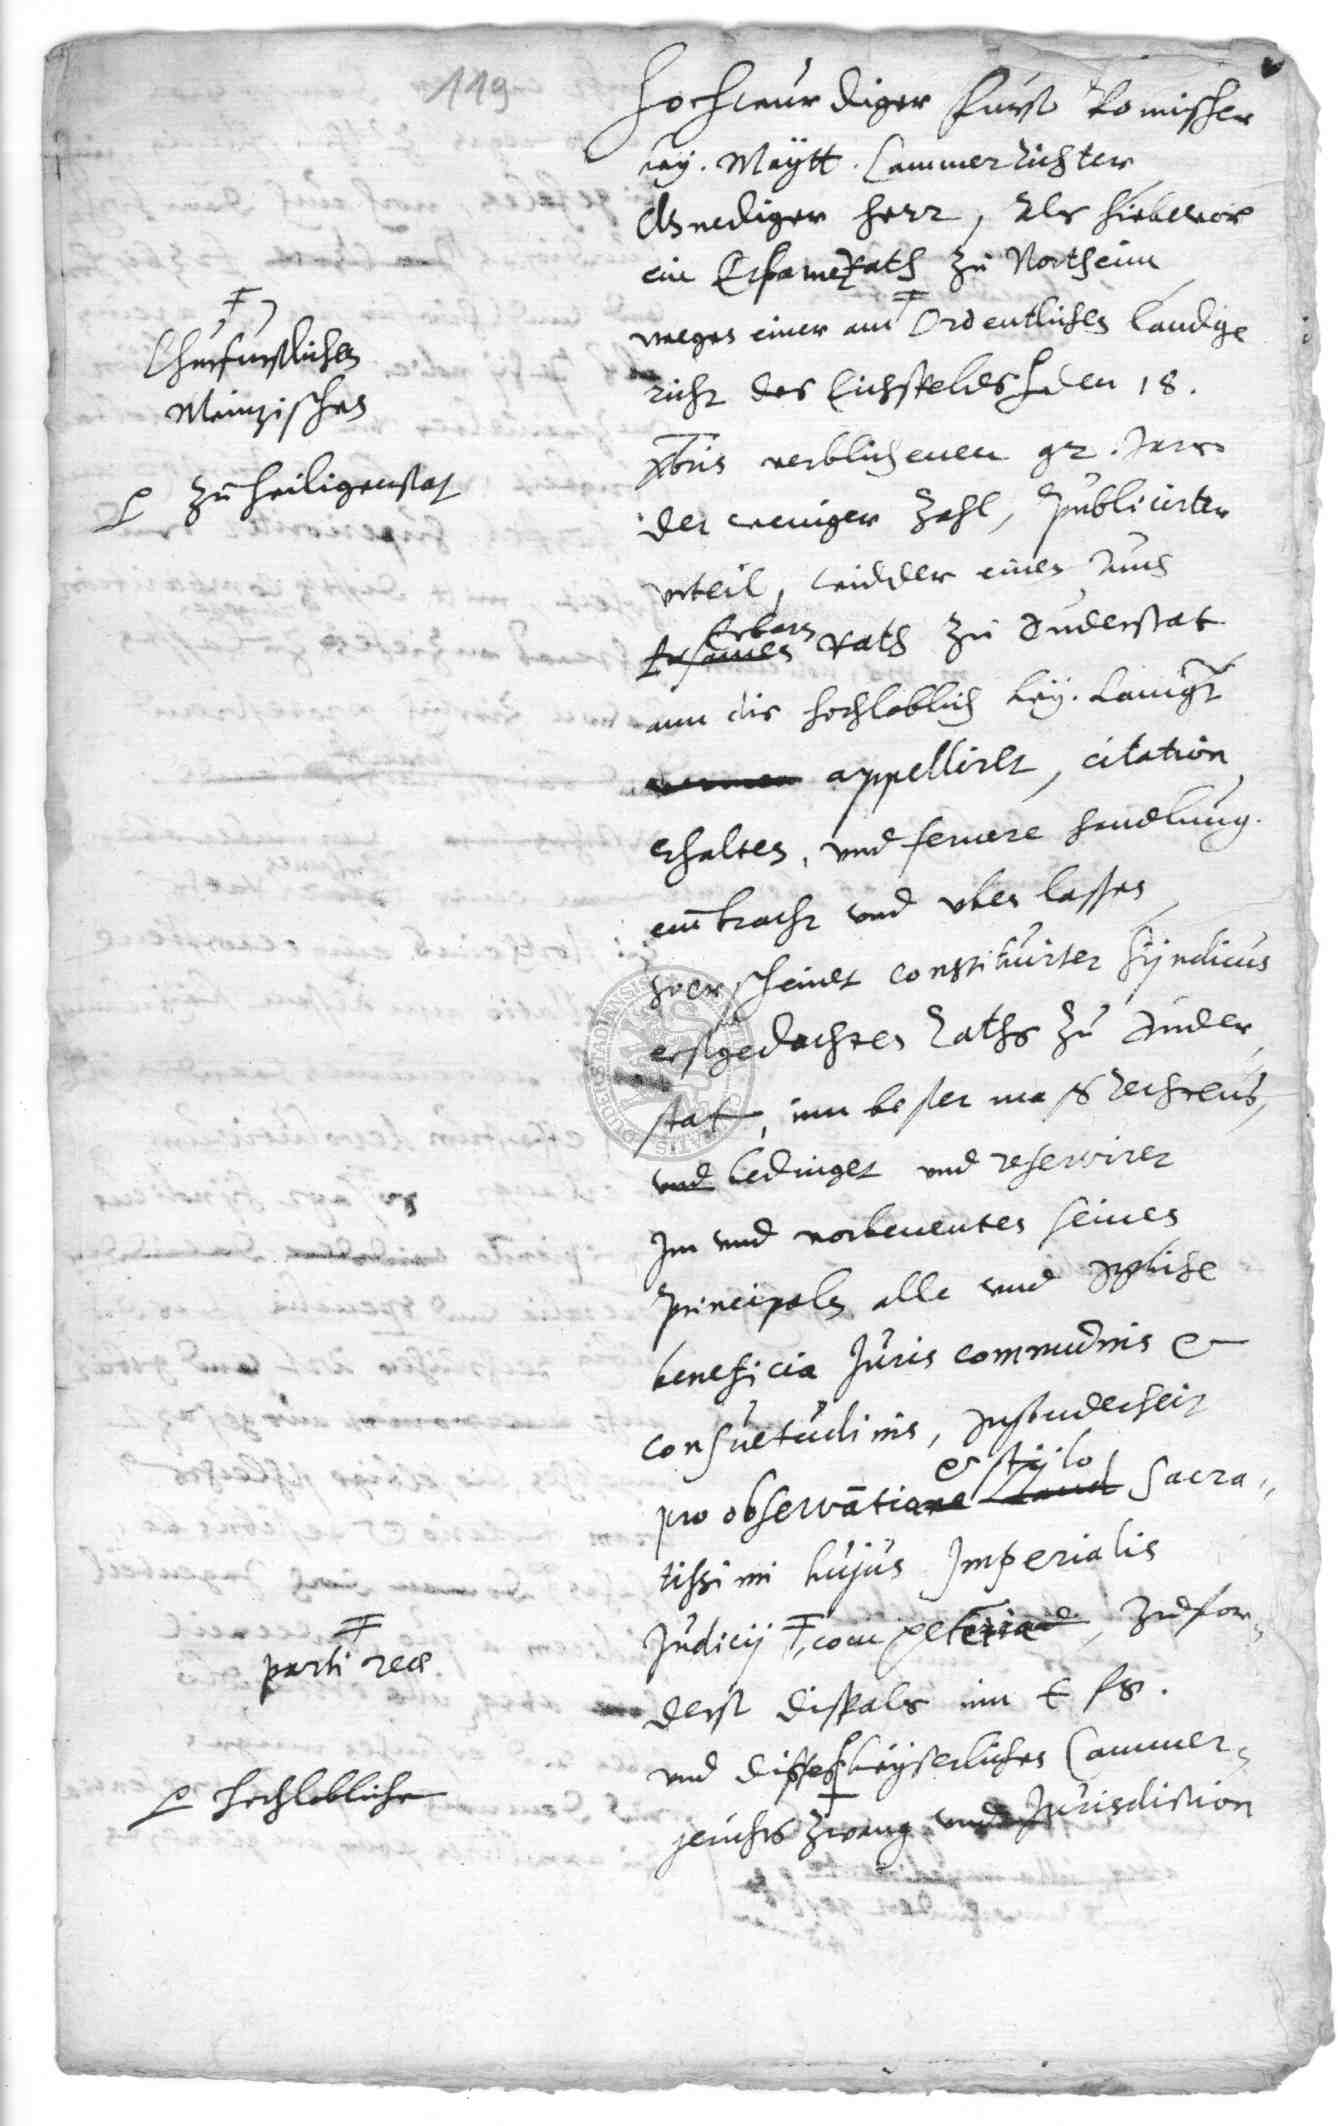 119
Hochwurdiger Furst Romischer
Key. Maytt. Cammerrichter
Gnediger Herr, Als hiebevor
ein Erhamer Rath zu Northeim
weges einer am Ordentlichen Landge
richt des Eichsfeldes den 18.
Xbris verblichenen 92. Jars
der weniger Zahl, Publicirter
urteil, widder einen auch
Ersames Erbarn Rath zu Duderstat
ann dis hochloblich Key. Camgr.
appellirt, citation
erhalten, und fernere handlung
einbracht und uben lassen
erscheinet constituirter Syndicus
erstgedachtes Raths zu Duder
stat, inn bester mass Rechtens,
und bedinget und reserviret
Im und vorbenentes seines
Principaln alle und Jgliche
beneficia Juris communis &
consuetudinis, Insonderheit
pro observatione & stylo sacra-
tissimi hujus Imperialis
Judicij competirend, zufor
derst disfals inn E f g.
und disses Keyserliches Cammer
gerichts Zwang und Jurisdiction
Churfurstliches
Meintzisches
zu Heiligenstat
parti reae
hochlobliche